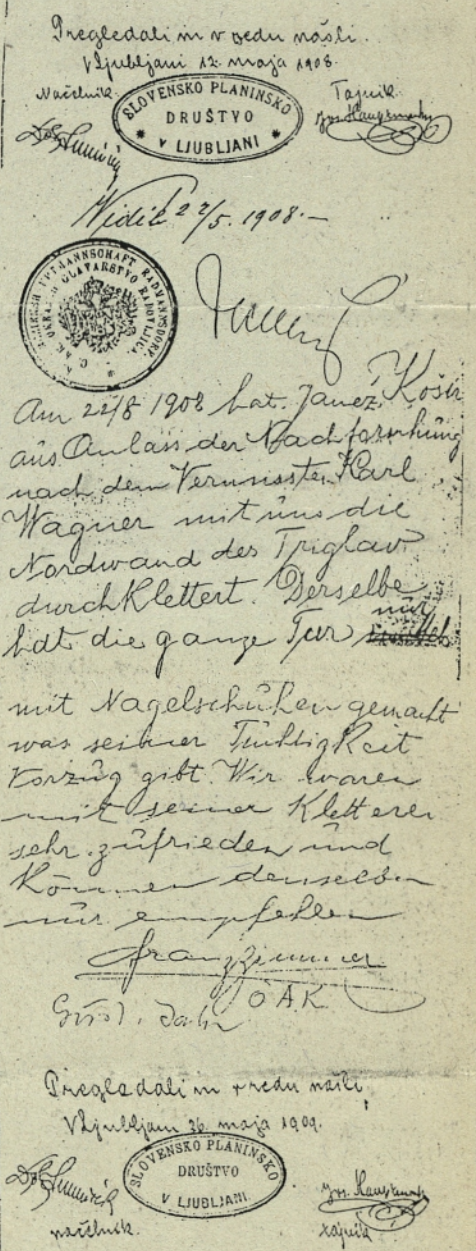 Pregledali in v redu našli.
V Ljubljani 12. maja 1908.
Načelnik Tajnik
SLOVENSKO PLANINSKO
DRUŠTVO
V LJUBLJANI
22/5. 1908.
K. K. BEZIRKSHAUPTMANNSCHAFT RADMANNSDORF
C. KR. OKRAJNO GLAVARSTVO RADOVLJICA
Am 22/8 1908 hat Janez Košir
aus Anlass der Nachforschung
nach dem Vermissten Karl
Wagner mit uns die
Nordwand des Triglav
durchklettert. Derselbe
hat die ganze Tur nur
mit Nagelschuhen gemacht
was seiner Tüchtigkeit
Vorzug gibt. Wir waren
mit seiner Kletterei
sehr zufrieden und
können denselben
nur empfehlen
Franz Zimmer
Ö A K
Gust. Jahn
Pregledali in v redu našli
V Ljubljani 26. maja 1909.
SLOVENSKO PLANINSKO
DRUŠTVO
V LJUBLJANI
načelnik. tajnik